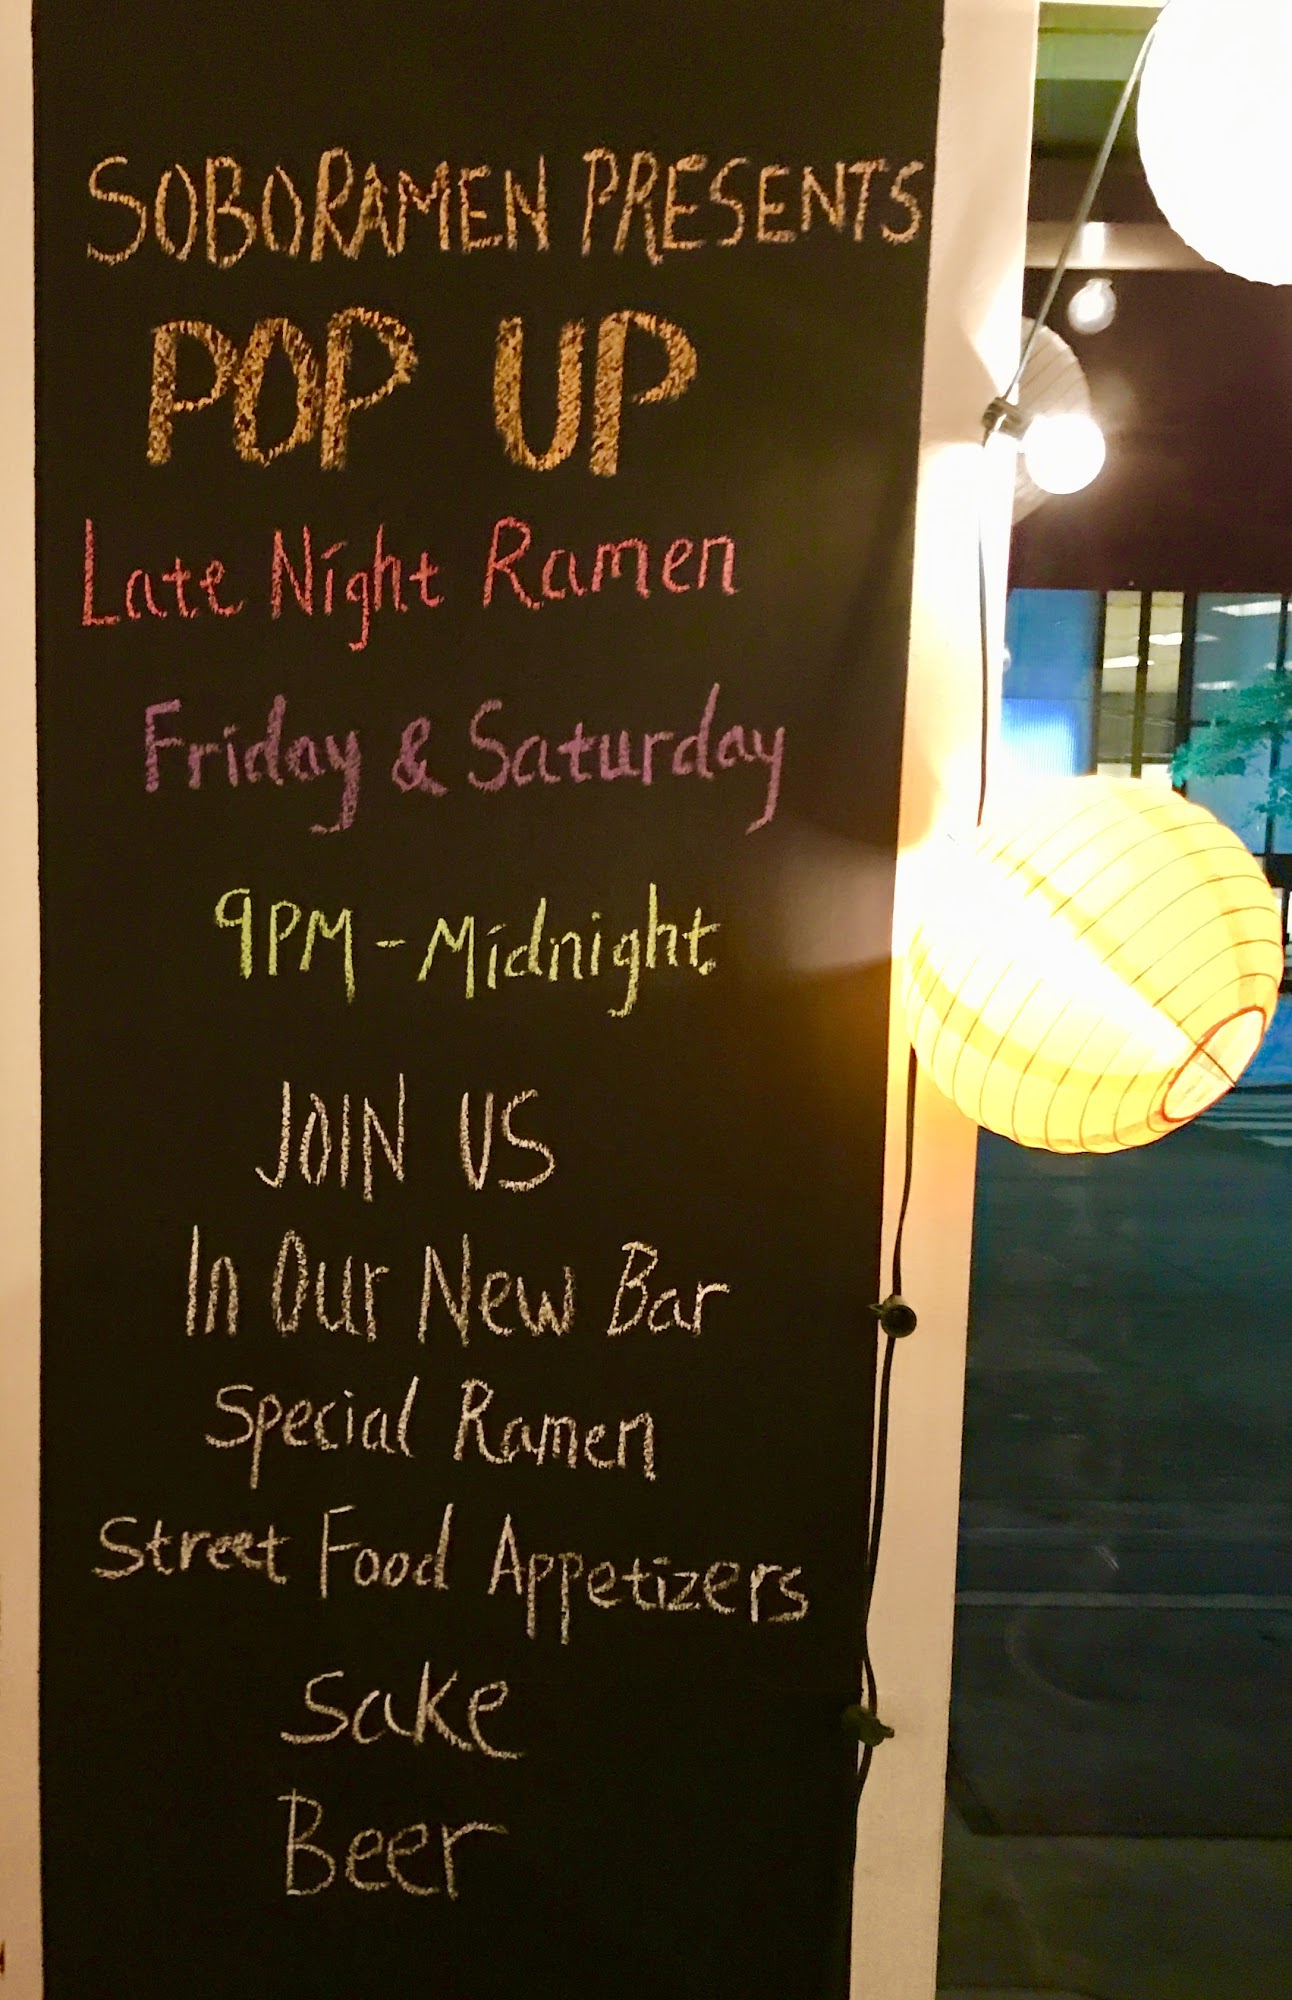 SOBORAMEN PRESENTS
POP UP
Late Night Ramen
Friday & Saturday
9PM - Midnight
JOIN US
In Our New Bar
Special Ramen
Street Food Appetizers
Sake
Beer